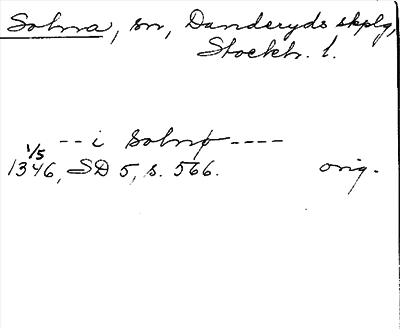 Solna, sn, Danderyds skplg,
Stockh. l.
-- i Solnø ----
1/5
1346, SD 5, s. 566. orig.